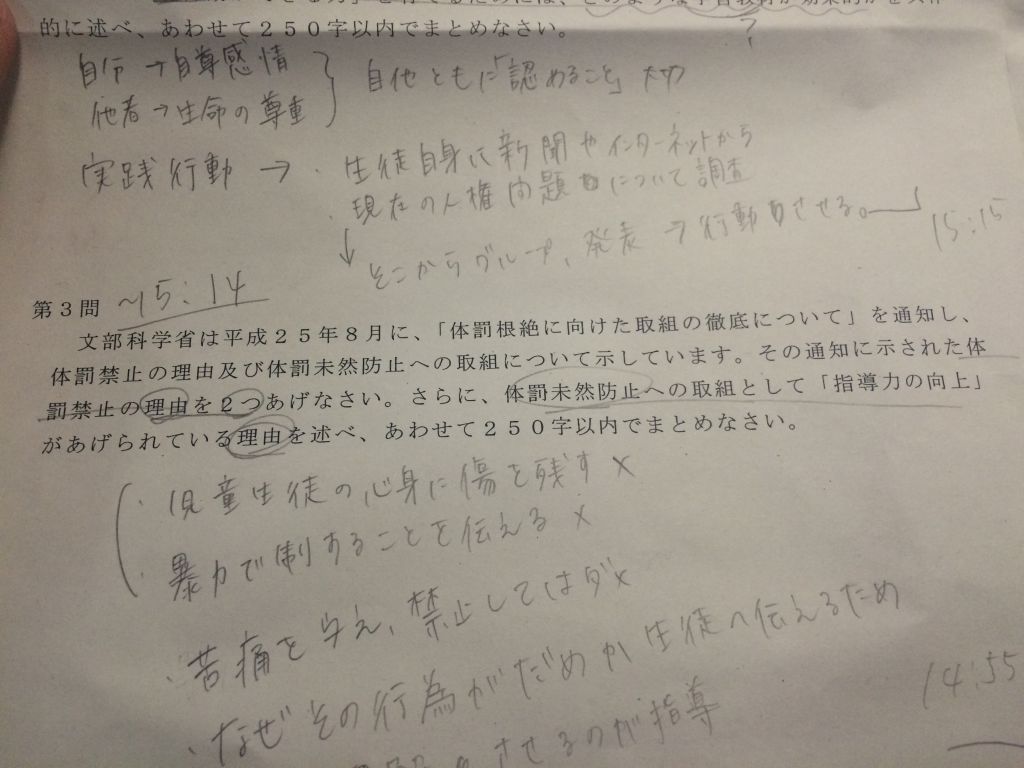 的に述べ、あわせて２５０字以内でまとめなさい。
？
自分→自尊感情
他者→生命の尊重
自他ともに「認めること」大切
実践行動→・生徒自身に新聞やインターネットから
・現在の人権問題について調査
↓
そこからグループ、発表→行動させる。
15:15
第３問 ～15:14
文部科学省は平成２５年８月に、「体罰根絶に向けた取組の徹底について」を通知し、
体罰禁止の理由及び体罰未然防止への取組について示しています。その通知に示された体
罰禁止の理由を２つあげなさい。さらに、体罰未然防止への取組として「指導力の向上」
があげられている理由を述べ、あわせて２５０字以内でまとめなさい。
・児童生徒の心身に傷を残す×
・暴力で制することを伝える×
・苦痛を与え、禁止してはダ×
・なぜその行為がだめか生徒へ伝えるため
14:55
させるのが指導